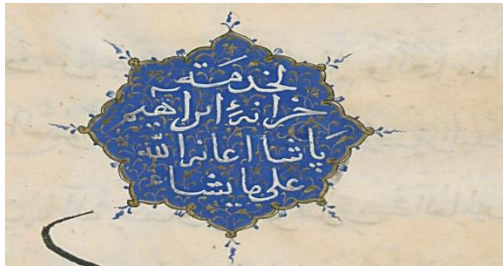 لخدمة
خزانة ابراهيم
پاشا اعانه الله
على ما يشا